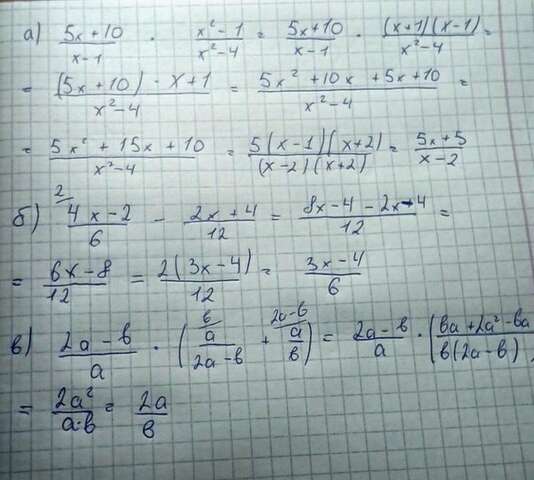 а) (5x+10)/(x-1) · (x²-1)/(x²-4) = (5x+10)/(x-1) · ((x+1)(x-1))/(x²-4) =
= ((5x+10) · x+1)/(x²-4) = (5x²+10x+5x+10)/(x²-4) =
= (5x²+15x+10)/(x²-4) = (5(x-1)(x+2))/((x-2)(x+2)) = (5x+5)/(x-2)
б) ²/(4x-2)/6 - (2x+4)/12 = (8x-4-2x-4)/12 =
= (6x-8)/12 = (2(3x-4))/12 = (3x-4)/6
в) (2a-в)/a · (в/a/(2a-в) + 2a-в/a/в) = (2a-в)/a · (вa+2a²-вa)/(в(2a-в)
= 2a²/(a·в) = 2a/в